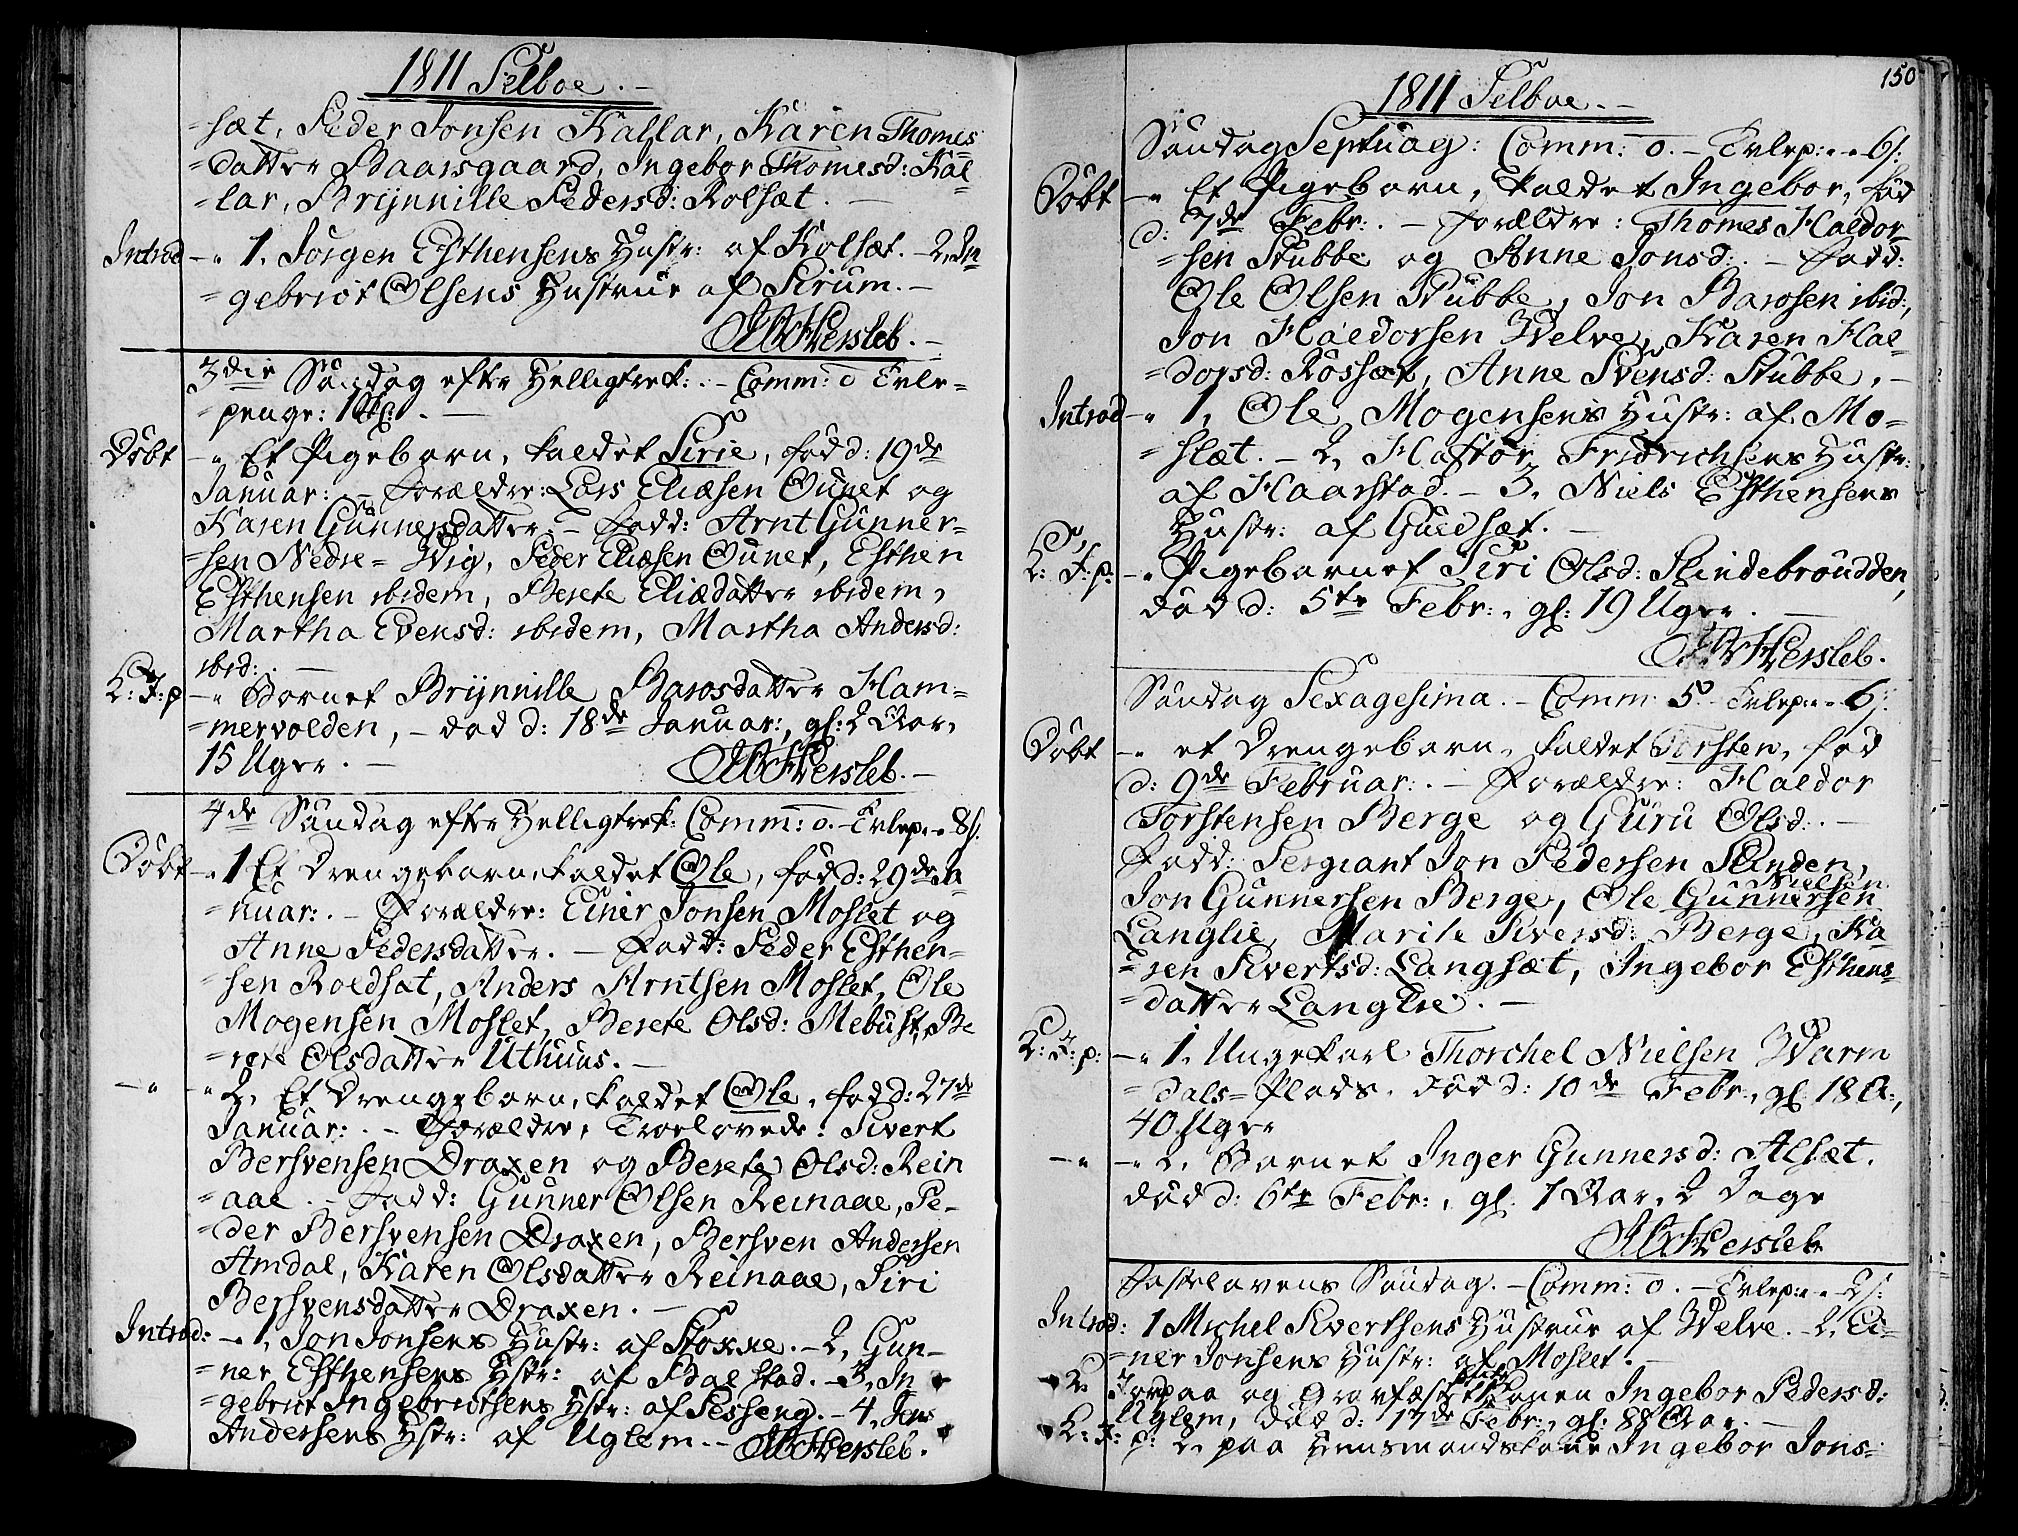 1811 Selboe. -
=sæt, Peder Jonsen Kallar, Karen Thomes=
=datter Baarsgaard, Ingebor Thomesd: Kal=
=lar, Brynnille Pedersd: Rolsæt. -
Introd -" 1, Jørgen Esthensens Hustr: af Kolsæt. - 2, In=
=gebrict Olsens Hustrue af Sirum. -
Hersleb. -
3die Søndag efter Helligtrek: - Comm: 0 Tvle=
=penge:
Døbt -" Et Pigebarn, kaldet Sirie, fød d: 19de
Januar: - Forældre: Lars Eliæsen Ounet og
Karen Gunnersdatter. - Fadd: Arnt Gunner=
=sen Nedre=Wig, Peder Eliæsen Ounet, Esthen
Esthensen ibidem, Berete Eliædatter ibidem,
Martha Evensd: ibidem, Martha Andersd:
ibid: -
L: J: p -" Barnet Brynnille Barosdatter Ham=
=mervolden, - død d: 18de Januar:, gl: 2 Aar,
15 Uger. -
Hersleb. -
4de Søndag efter Helligtrek: Comm: 0. - Tvlep: " 8s:
Døbt -" 1 Et Drengebarn, kaldet Ole, fød d: 29de Ja=
=nuar: - Forældre: Einer Jonsen Moslet og
Anne Pedersdatter. - Fadd: Peder Esthen=
=sen Roldsæt, Anders Arntsen Moslet, Ole
Mogensen Moslet, Berete Olsd: Mebust, Be
=rete Olsdatter Uthuus. -
-"- " 2, Et Drengebarn, kaldet Ole, fød d: 27de
Januar: - Forældre, Troelovede: Sivert
Bersvensen Draxen og Berete Olsd: Rein
=aae. - Fadd: Gunner Olsen Reinaae, Pe=
=der Bersvensen Draxen, Bersven Andersen
Amdal, Karen Olsdatter Reinaae, Siri
Bersvensdatter Draxen. -
Introd: -" 1, Jon Jonsens Hustr: af Stokke. - 2, Gun=
=ner Esthensens Hstr: af Balstad. - 3, In
=gebrict Ingebrictsens Hstr: af Sesseng. - 4, Jens
Andersens Hstr: af Uglem. - Hersleb.
150
1811 Selboe. -
Søndag Septuag: Comm: 0. - Tvlep: " 6s:
Døbt -" Et Pigebarn, kaldet Ingebor, fød
d: 7de Febr: - Forældre: Thomes Haldor=
=sen Stubbe og Anne Jonsd: - Fadd:
Ole Olsen Stubbe, Jon Barosen ibid:,
Jon Haldorsen Welve, Karen Hal=
=dorsd: Rossæt, Anne Svensd: Stubbe. -
Introd -" 1, Ole Mogensens Hustr: af Mo=
=slæt. - 2, Haftor Fridrichsens Hustr:
af Haarstad. - 3, Niels Esthensens
Hustr: af Guldsæt. -
L: J: p: -" Pigebarnet Siri Olsd: Slindebroudden,
død d: 5te Febr:, gl: 19 Uger. -
Hersleb.
Søndag Sexagesima. - Comm: 5. Tvlep: " 6s:
Døbt -" et Drengebarn, kaldet Torsten, fød
d: 9de Februar: - Forældre: Haldor
Torstensen Berge og Guru Olsd: -
Fadd: Sergiant Jon Pedersen Slinden,
Nielsen
Jon Gunnersen Berge, Ole Gunnersen
Langlie, Marite Siversd: Berge, Ka=
=ren Sivertsd: Langsæt, Ingebor Esthens=
=datter Langlie. -
L: J: p: -" 1, Ungekarl Thorchel Nielsen Warm
=dals=Plads, død d: 10de Febr:, gl: 18 A:,
40 Uger
-"- -" 2, Barnet Inger Gunnersd: Alsæt,
død d: 6te Febr:, gl: 1 Aar, 2 Dage
Hersleb
Fastelavens Søndag. - Comm: 0. - Tvlep: " 2s:
Introd: 1 Michel Sivertsens Hustrue af Welve. - 2, Ei=
=ner Jonsens Hustr: af Moslet. -
Jordpaa og Gravfæst Konen Ingebor Pedersd:
Uglem, død d: 17de Febr:, gl: 88 Aar. -
L: J: p: 2, paa Huusmandskone Ingebor Jons=